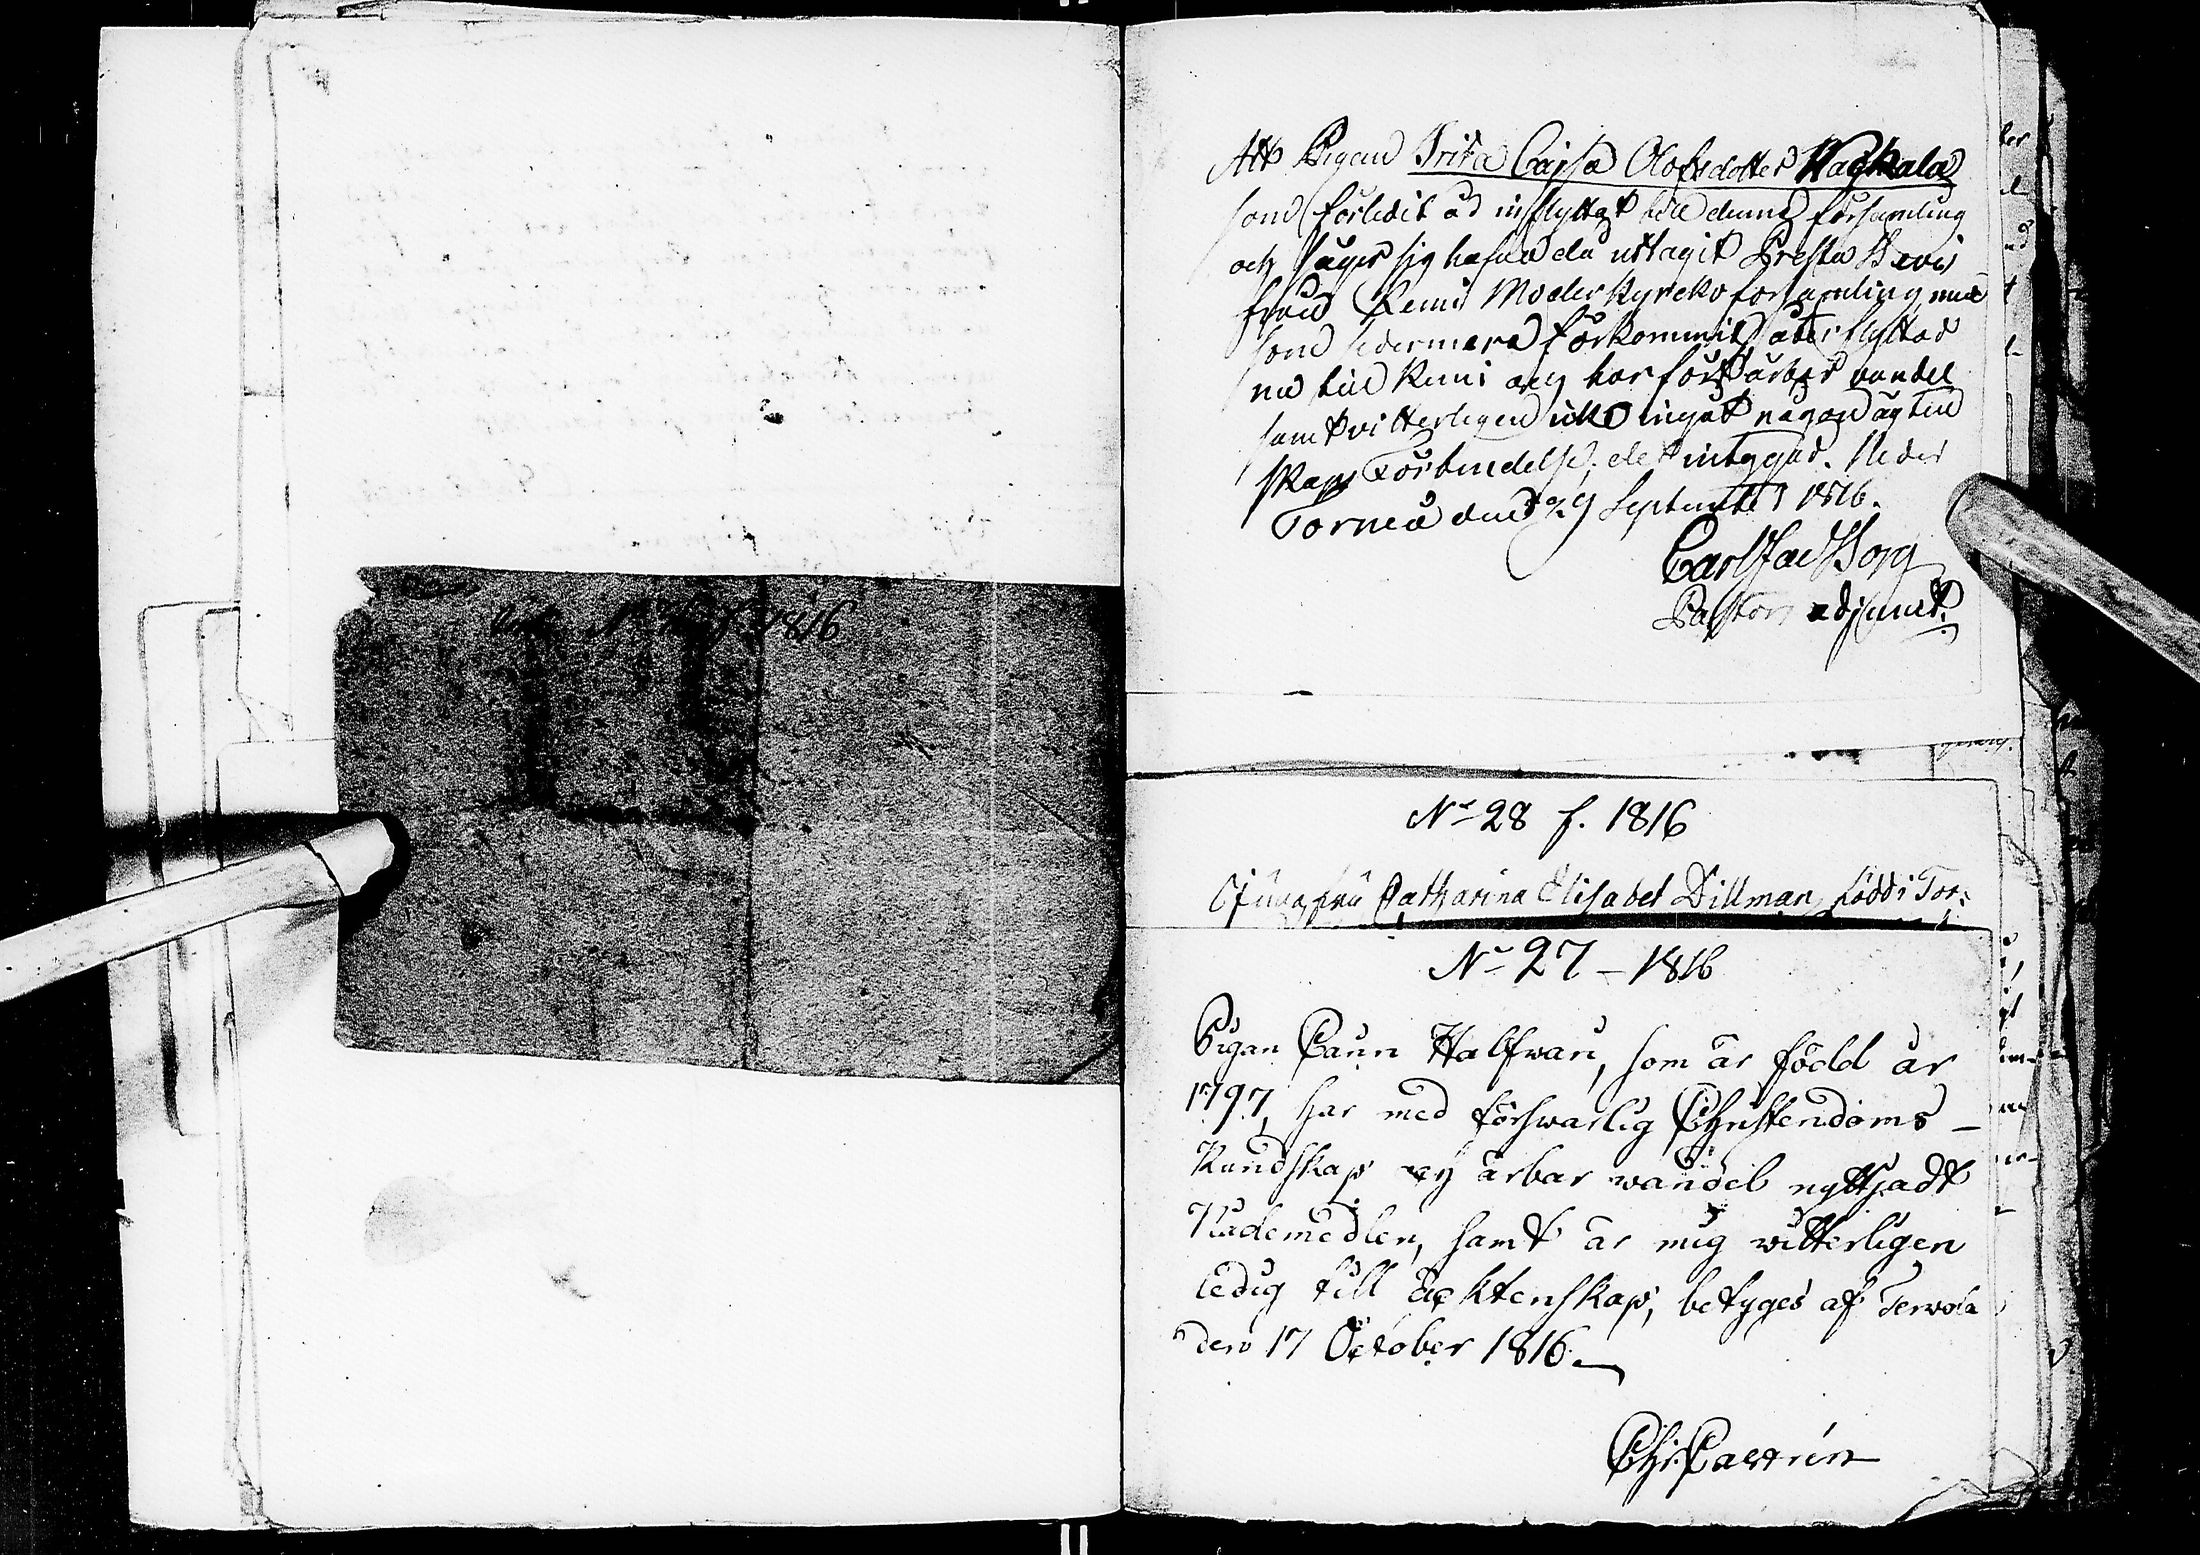 1816
Att Pigan Brita Cajsa Olofsdotter Waghala
som förledit år inflyttat till denna församling
och säger sig hafva då uttagit Preste Bevis
från Kemi Moderkyrko församling men
som sedermera förkommit, återflyttar
nu till Kemi och har fört ärbar vandel
samt vitterligen icke ingåt någon ägten
skaps Förbindelse, det intygar. Neder
Torneå den 29 September 1816.
Carl Jac Borg
Pastors adjunct.
No 28 f. 1816
Jungfru Catharina Elisabet Dillman, född i Tor:
No 27 - 1816
Pigan Caun Halfwari, som är född år
1797, har med förswarlig Christendoms-
Kundskap och ärbar wandel nyttjadt
Nådemedlen, samt är mig witterligen
ledig till äcktenskap, betyges af Terwola
den 17 October 1816.
Chr. Castrén